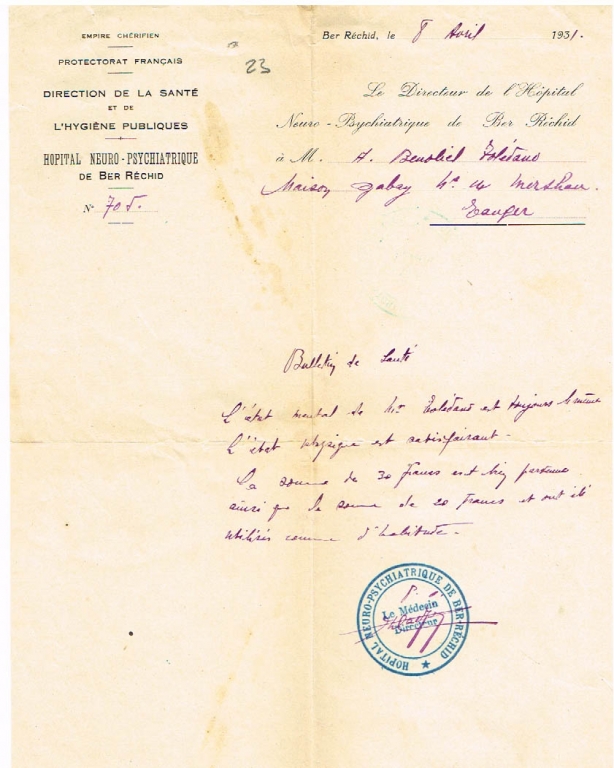 EMPIRE CHÉRIFIEN
PROTECTORAT FRANÇAIS
DIRECTION DE LA SANTÉ
ET DE
L'HYGIÈNE PUBLIQUES
HOPITAL NEURO-PSYCHIATRIQUE
DE BER RÉCHID
N° 705.
23
Ber Réchid, le 8 Avril 1931.
Le Directeur de l'Hôpital
Neuro-Psychiatrique de Ber Réchid
à M. A. Benoliel Tolédano
Maison Gabay du Mershan.
Tanger
Bulletin de Santé
L'état mental de Mr Tolédano est toujours le même
L'état physique est satisfaisant.
La somme de 30 francs est bien parvenue
ainsi que la somme de 20 francs et ont été
utilisés comme d'habitude.
P.
Le Médecin
Directeur
HOPITAL NEURO-PSYCHIATRIQUE DE BER-RÉCHID